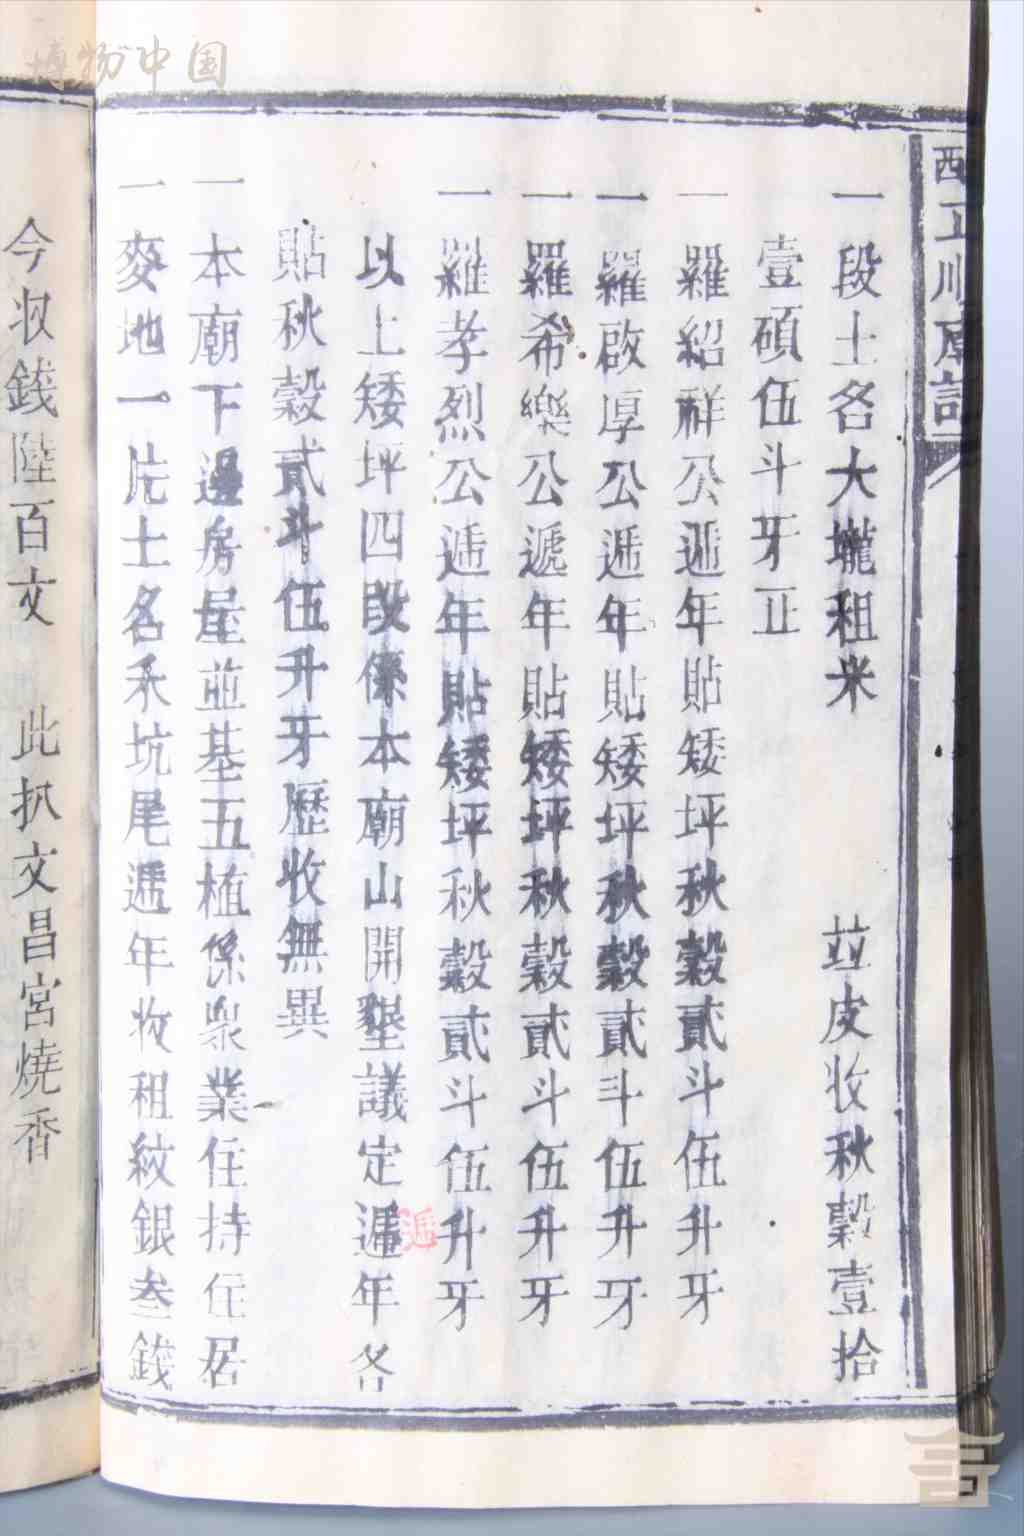 博物中国
一段土名大壠租米 竝皮收秋穀壹拾
壹碩伍斗牙正
一羅紹祥公遞年貼矮坪秋穀貳斗伍升牙
一羅啟厚公遞年貼矮坪秋穀貳斗伍升牙
一羅希樂公遞年貼矮坪秋穀貳斗伍升牙
一羅孝烈公遞年貼矮坪秋穀貳斗伍升牙
遞
以上矮坪四段係本廟山開墾議定遞年各
貼秋穀貳斗伍升牙歷收無異
一本廟下邊房屋並基五植係衆業住持住居
一麥地一片土名禾坑尾遞年收租紋銀叁錢
今收錢陸百文 此扒文昌宮燒香